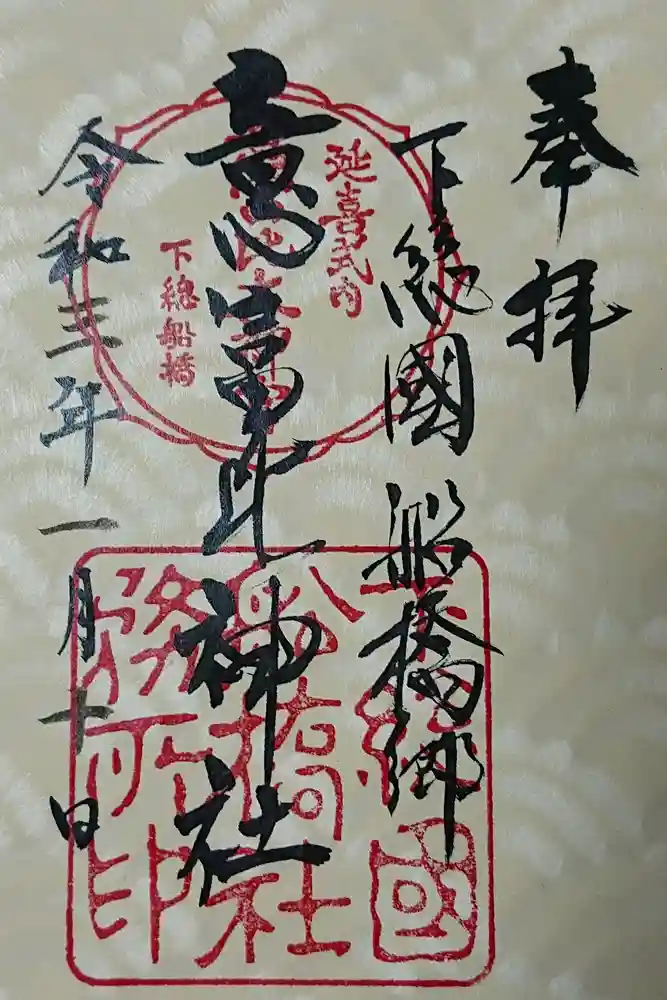 奉拝
下総國船橋郷
意富比神社
令和三年一月十日
延喜式内
下總船橋
下總國
船橋社
務所印